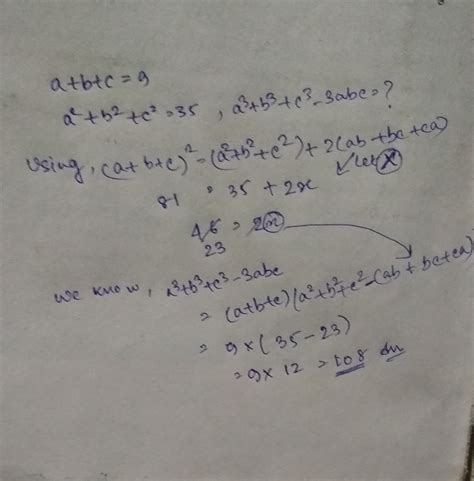 a+b+c = 9
a²+b²+c² = 35 , a³+b³+c³-3abc = ?
Using, (a+b+c)² = (a²+b²+c²) + 2(ab+bc+ca)
let x
81 = 35 + 2x
46 = 2x
23
we know, a³+b³+c³-3abc
= (a+b+c)(a²+b²+c²-(ab+bc+ca)
= 9×(35-23)
= 9×12 = 108